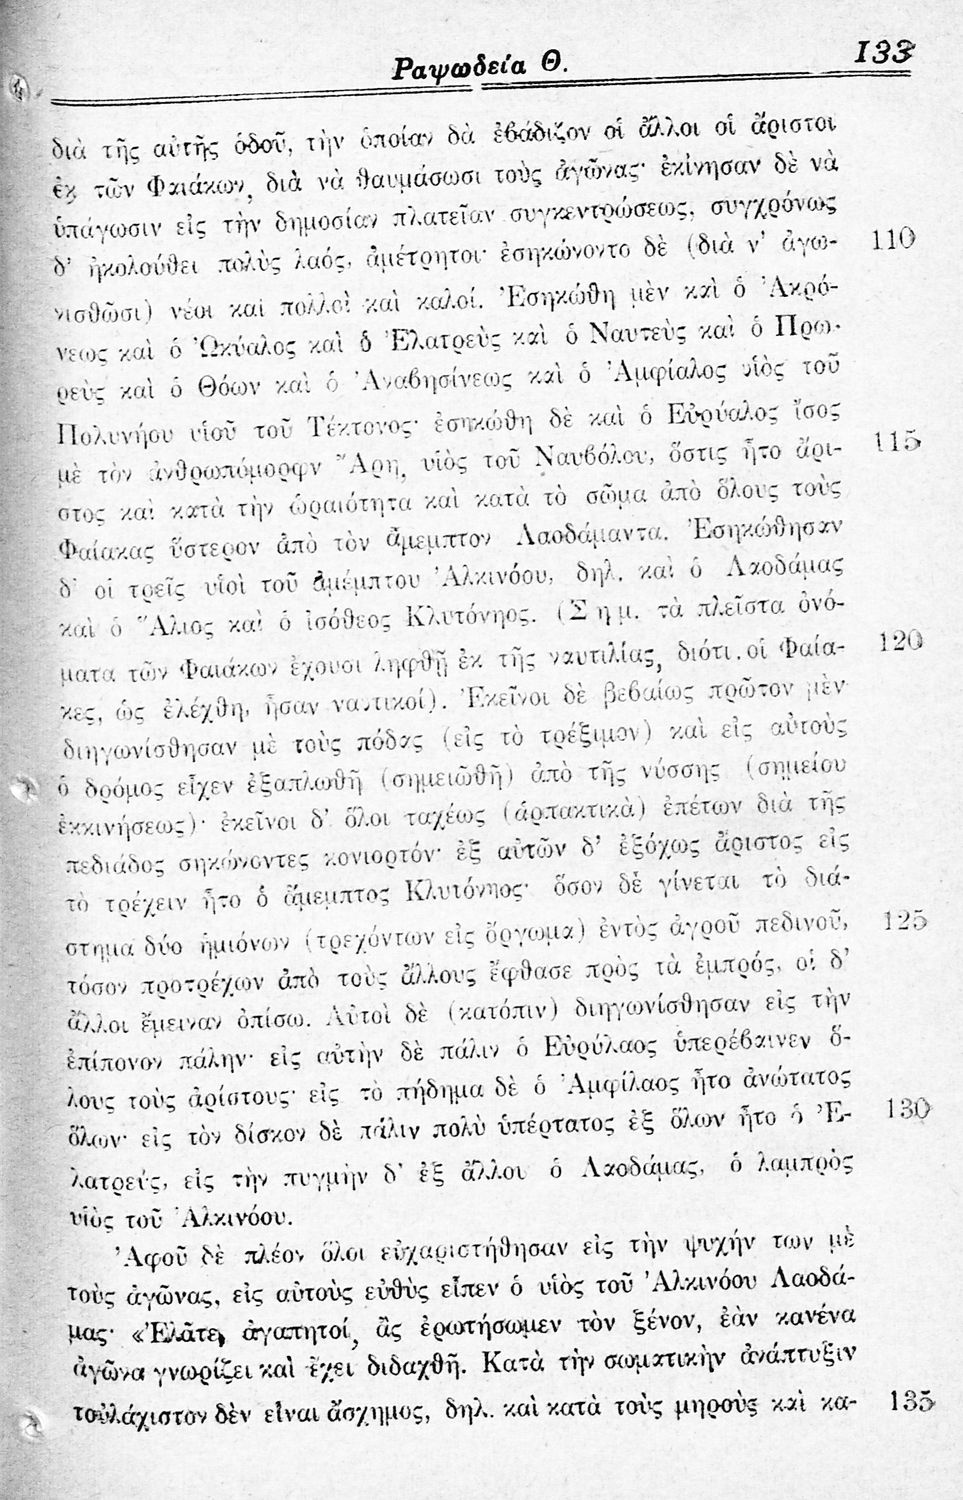 Ραψωδεία Θ. 133
διὰ τῆς αὐτῆς ὁδοῦ, τὴν ὁποίαν δὰ ἐβάδιζον οἱ ἄλλοι οἱ ἄριστοι
ἐκ τῶν Φαιάκων, διὰ νὰ θαυμάσωσι τοὺς ἀγῶνας· ἐκίνησαν δὲ νὰ
ὑπάγωσιν εἰς τὴν δημοσίαν πλατεῖαν συγκεντρώσεως, συγχρόνως
δ' ἠκολούθει πολὺς λαός, ἀμέτρητοι· ἐσηκώνοντο δὲ (διὰ ν' ἀγω- 110
νισθῶσι) νέοι καὶ πολλοὶ καὶ καλοί. Ἐσηκώθη μὲν καὶ ὁ Ἀκρό-
νεως καὶ ὁ Ὠκύαλος καὶ ὁ Ἐλατρεὺς καὶ ὁ Ναυτεὺς καὶ ὁ Πρω-
ρεὺς καὶ ὁ Θόων καὶ ὁ Ἀναβησίνεως καὶ ὁ Ἀμφίαλος υἱὸς τοῦ
Πολυνήου υἱοῦ τοῦ Τέκτονος· ἐσηκώθη δὲ καὶ ὁ Εὐρύαλος ἴσος
μὲ τὸν ἀνθρωπόμορφν Ἄρη, υἱὸς τοῦ Ναυβόλου, ὅστις ἦτο ἄρι- 115
στος καὶ κατὰ τὴν ὡραιότητα καὶ κατὰ τὸ σῶμα ἀπὸ ὅλους τοὺς
Φαίακας ὕστερον ἀπὸ τὸν ἄμεμπτον Λαοδάμαντα. Ἐσηκώθησαν
δ' οἱ τρεῖς υἱοὶ τοῦ ἀμέμπτου Ἀλκινόου, δηλ. καὶ ὁ Λαοδάμας
καὶ ὁ Ἅλιος καὶ ὁ ἰσόθεος Κλυτόνηος. (Σημ. τὰ πλεῖστα ὀνό-
ματα τῶν Φαιάκων ἔχουσι ληφθῆ ἐκ τῆς ναυτιλίας, διότι οἱ Φαία- 120
κες, ὡς ἐλέχθη, ἦσαν ναυτικοί). Ἐκεῖνοι δὲ βεβαίως πρῶτον μὲν
διηγωνίσθησαν μὲ τοὺς πόδας (εἰς τὸ τρέξιμον) καὶ εἰς αὐτοὺς
ὁ δρόμος εἶχεν ἐξαπλωθῆ (σημειωθῆ) ἀπὸ τῆς νύσσης (σημείου
ἐκκινήσεως)· ἐκεῖνοι δ' ὅλοι ταχέως (ἁρπακτικὰ) ἐπέτων διὰ τῆς
πεδιάδος σηκώνοντες κονιορτόν· ἐξ αὐτῶν δ' ἐξόχως ἄριστος εἰς
τὸ τρέχειν ἦτο ὁ ἄμεμπτος Κλυτόνηος· ὅσον δὲ γίνεται τὸ διά-
στημα δύο ἡμιόνων (τρεχόντων εἰς ὄργωμα) ἐντὸς ἀγροῦ πεδινοῦ, 125
τόσον προτρέχων ἀπὸ τοὺς ἄλλους ἔφθασε πρὸς τὰ ἐμπρός, οἱ δ'
ἄλλοι ἔμειναν ὀπίσω. Αὐτοὶ δὲ (κατόπιν) διηγωνίσθησαν εἰς τὴν
ἐπίπονον πάλην· εἰς αὐτὴν δὲ πάλιν ὁ Εὐρύλαος ὑπερέβαινεν ὅ-
λους τοὺς ἀρίστους· εἰς τὸ πήδημα δὲ ὁ Ἀμφίλαος ἦτο ἀνώτατος
ὅλων· εἰς τὸν δίσκον δὲ πάλιν πολὺ ὑπέρτατος ἐξ ὅλων ἦτο ὁ Ἐ- 130
λατρεύς, εἰς τὴν πυγμὴν δ' ἐξ ἄλλου ὁ Λαοδάμας, ὁ λαμπρὸς
υἱὸς τοῦ Ἀλκινόου.
Ἀφοῦ δὲ πλέον ὅλοι εὐχαριστήθησαν εἰς τὴν ψυχήν των μὲ
τοὺς ἀγῶνας, εἰς αὐτοὺς εὐθὺς εἶπεν ὁ υἱὸς τοῦ Ἀλκινόου Λαοδά-
μας· «Ἐλᾶτε, ἀγαπητοί, ἂς ἐρωτήσωμεν τὸν ξένον, ἐὰν κανένα
ἀγῶνα γνωρίζει καὶ ἔχει διδαχθῆ. Κατὰ τὴν σωματικὴν ἀνάπτυξιν
τοὐλάχιστον δὲν εἶναι ἄσχημος, δηλ. καὶ κατὰ τοὺς μηροὺς καὶ κα- 135